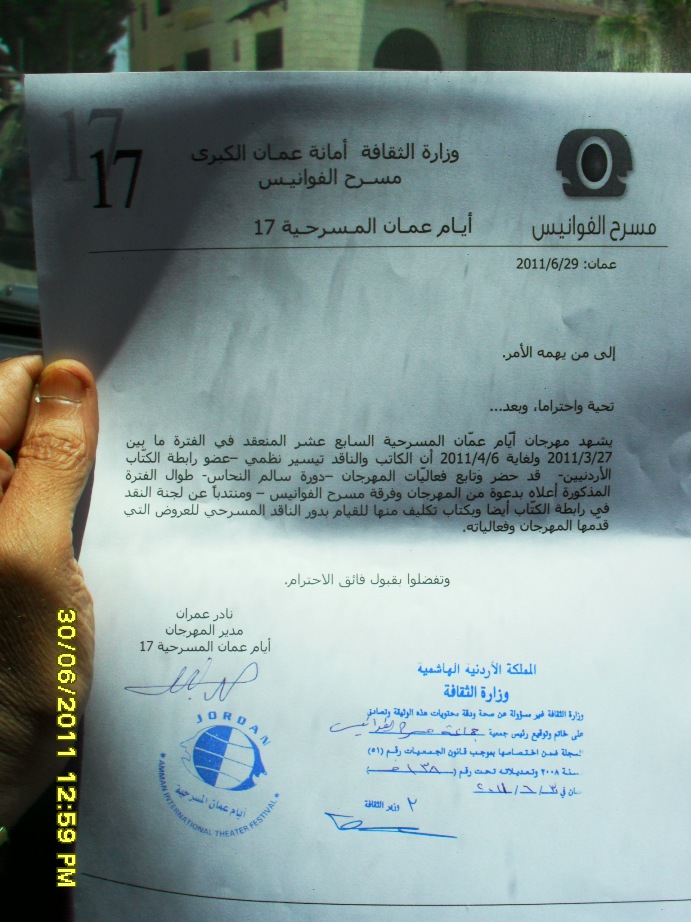 17
17
وزارة الثقافة أمانة عمان الكبرى
مسرح الفوانيس
أيام عمان المسرحية 17
مسرح الفوانيس
عمان: 2011/6/29
إلى من يهمه الأمر.
تحية واحتراما، وبعد...
يشهد مهرجان أيّام عمّان المسرحية السابع عشر المنعقد في الفترة ما بين
2011/3/27 ولغاية 2011/4/6 أن الكاتب والناقد تيسير نظمي –عضو رابطة الكتّاب
الأردنيين- قد حضر وتابع فعاليّات المهرجان –دورة سالم النحاس- طوال الفترة
المذكورة أعلاه بدعوة من المهرجان وفرقة مسرح الفوانيس – ومنتدباً عن لجنة النقد
في رابطة الكتّاب أيضا وبكتاب تكليف منها للقيام بدور الناقد المسرحي للعروض التي
قدمها المهرجان وفعالياته.
وتفضلوا بقبول فائق الاحترام.
نادر عمران
مدير المهرجان
أيام عمان المسرحية 17
JORDAN
أيام عمان المسرحية
* AMMAN INTERNATIONAL THEATER FESTIVAL *
المملكة الأردنية الهاشمية
وزارة الثقافة
وزارة الثقافة غير مسؤولة عن صحة ودقة محتويات هذه الوثيقة وتصادق
على خاتم وتوقيع رئيس جمعية
سجلة ضمن اختصاصها بموجب قانون الجمعيات رقم (٥١)
سنة ٢٠٠٨ وتعديلاته تحت رقم
وزير الثقافة
30/06/2011 12:59 PM